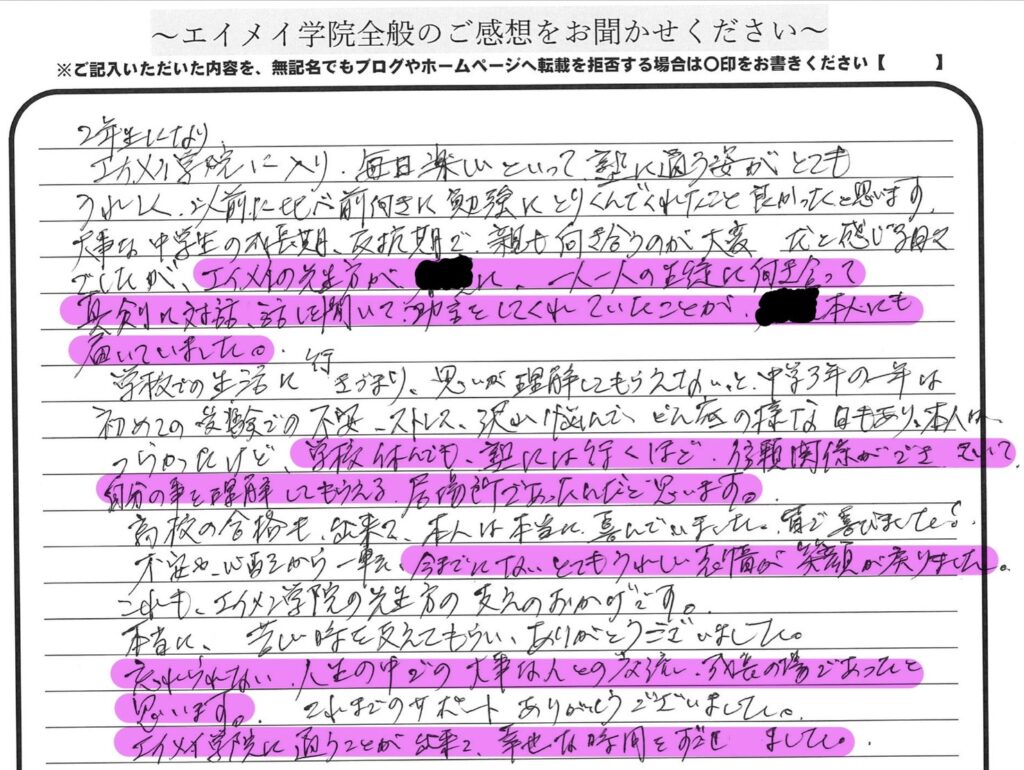 ～エイメイ学院全般のご感想をお聞かせください～
※ご記入いただいた内容を、無記名でもブログやホームページへ転載を拒否する場合は〇印をお書きください【　　】
2年生になり
エイメイ学院に入り、毎日楽しいといって、塾に通う姿がとても
うれしく、以前に比べ前向きに勉強にとりくんでくれたこと良かったと思います。
大事な中学生の成長期、反抗期で、親も向き合うのが大変 だと感じる日々
でしたが、エイメイの先生方が、 に、一人一人の生徒に向き合って
真剣に対話、話しを聞いて、助言をしてくれていたことが、 本人にも
届いていました。
学校での生活に 行きづまり、思いが理解してもらえない、と、中学3年の一年は
初めての受験での不安、ストレス、沢山悩んで、どん底の様な日もあり、本人は
つらかったけど、学校休んでも、塾には行くほど、信頼関係ができていて
自分の事を理解してもらえる、居場所であったんだと思います。
高校の合格も、出来て、本人は本当に、喜んでいました。皆で喜びました。
不安や、心配から一転、今までにないとてもうれしい表情が笑顔が戻りました。
これも、エイメイ学院の先生方の支えのおかげです。
本当に、苦しい時を支えてもらい、ありがとうございました。
忘れられない、人生の中での大事な人との交流し、成長の場であったと
思います。 これまでのサポートありがとうございました。
エイメイ学院に通うことが出来て、幸せな時間をすごしました。